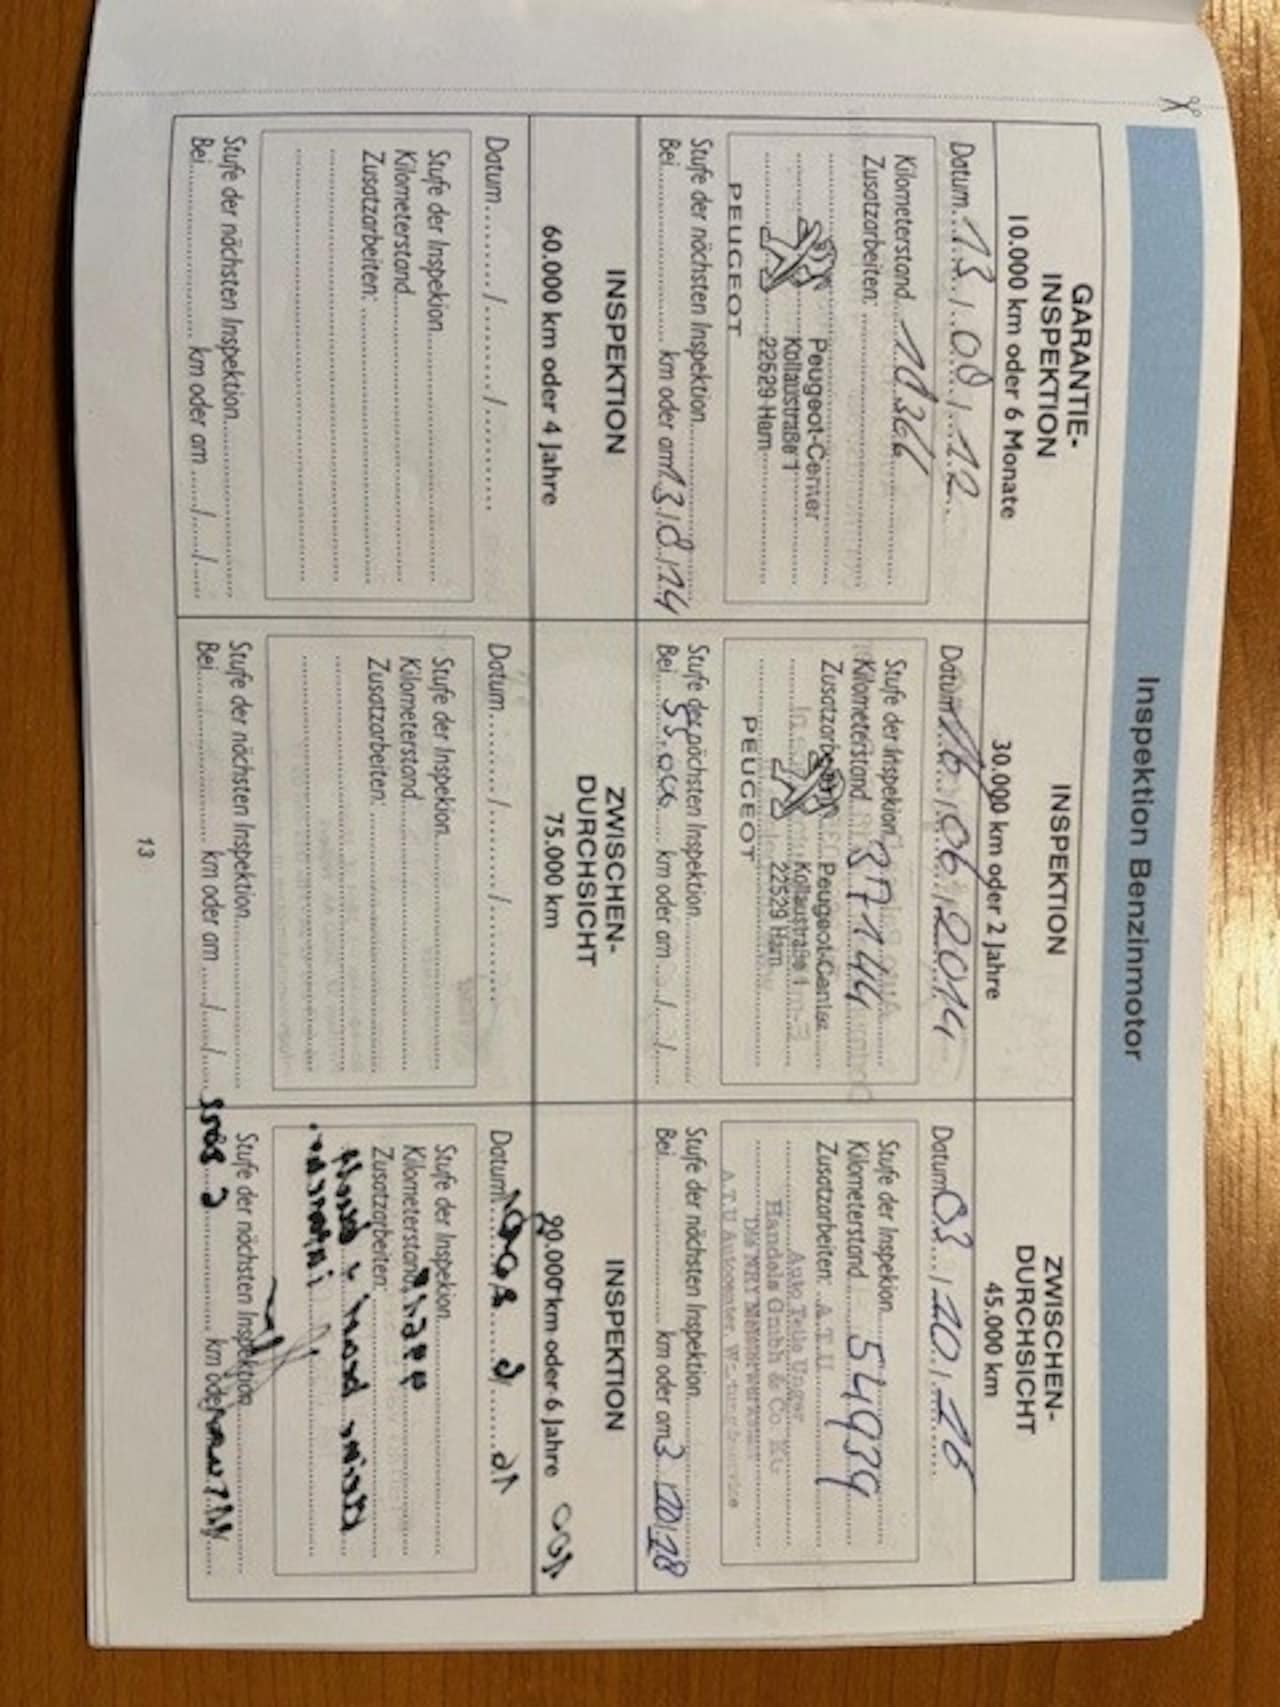 Inspektion Benzinmotor
GARANTIE-
INSPEKTION
10.000 km oder 6 Monate
Datum 13./.08./.12
Kilometerstand 10366
Zusatzarbeiten:
Peugeot-Center
Kollaustraße 1
22529 Ham
PEUGEOT
Stufe der nächsten Inspektion
Bei km oder am 13./.8./.14
INSPEKTION
30.000 km oder 2 Jahre
Datum 16./.06./.2014
Stufe der Inspekion
Kilometerstand 37144
Zusatzarbeiten
Peugeot-Center
Kollaustraße 1
22529 Ham
PEUGEOT
Stufe der nächsten Inspektion
Bei 55.000 km oder am ...../...../.....
ZWISCHEN-
DURCHSICHT
45.000 km
Datum 03./.10./.16
Stufe der Inspekion
Kilometerstand 54939
Zusatzarbeiten: A.T.U
Auto Teile Unger
Handels Gmbh & Co. KG
A.T.U Autocenter
Stufe der nächsten Inspektion
Bei km oder am 3 /10/18
INSPEKTION
60.000 km oder 4 Jahre
Datum......./......../.........
Stufe der Inspekion
Kilometerstand
Zusatzarbeiten:
Stufe der nächsten Inspektion
Bei km oder am ...../...../.....
ZWISCHEN-
DURCHSICHT
75.000 km
Datum......./......../.........
Stufe der Inspekion
Kilometerstand
Zusatzarbeiten:
Stufe der nächsten Inspektion
Bei km oder am ...../...../.....
INSPEKTION
90.000 km oder 6 Jahre
Datum
Stufe der Inspekion
Kilometerstand
Zusatzarbeiten:
Stufe der nächsten Inspektion
km oder
13